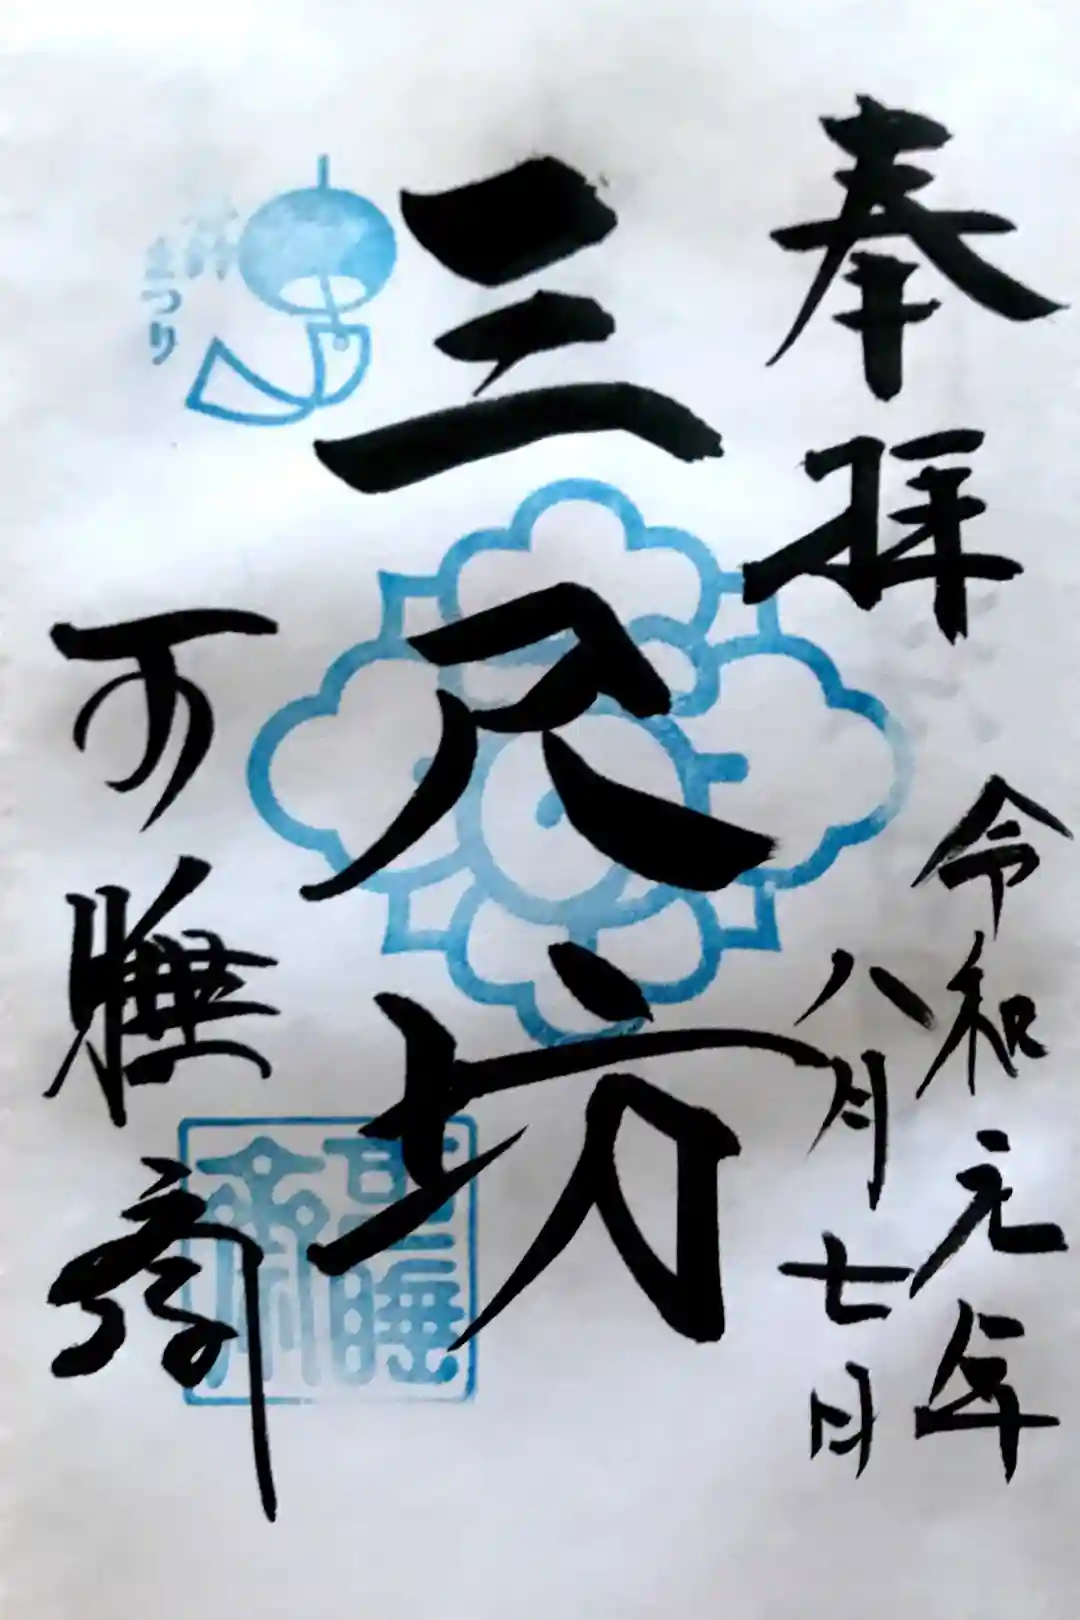 奉拝
令和元年
八月七日
三尺坊
可睡斎
風鈴
まつり
可睡
斎